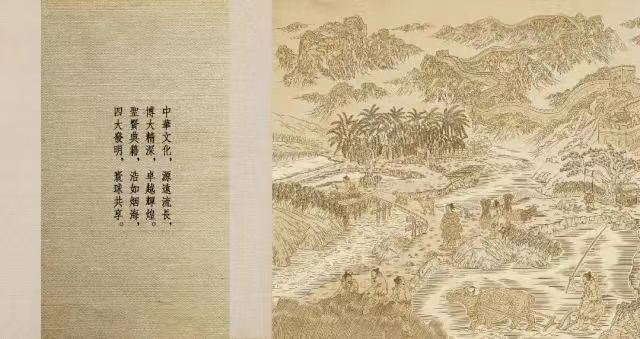 中華文化，源遠流長，
博大精深，卓越輝煌。
聖賢典籍，浩如烟海，
四大發明，寰球共享。